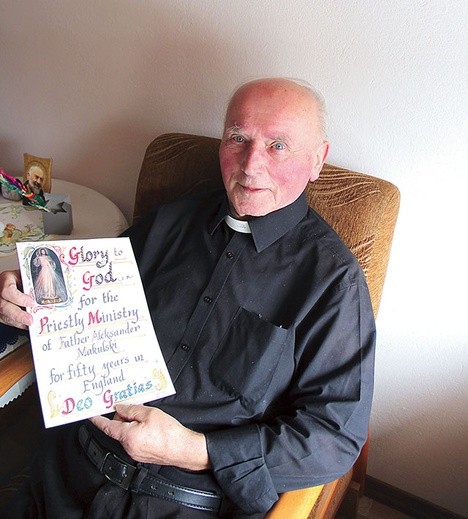 Glory to
God in
for the
Priestly Ministry
of Father Aleksander
Makulski
for fifty years in
England
Deo Gratias